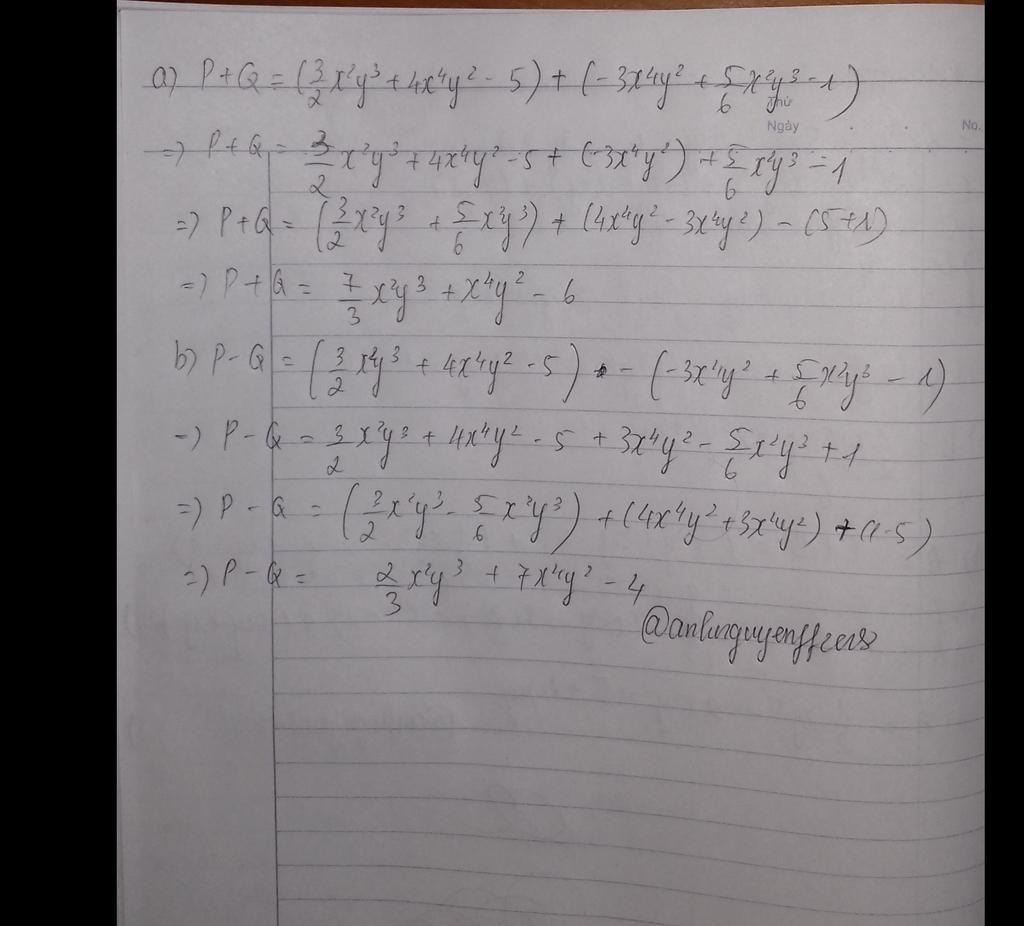 a) P+Q = (3/2 x²y³ + 4x⁴y² - 5) + (-3x⁴y² + 5/6 x²y³ - 1)
Thứ
Ngày No.
=) P+Q = 3/2 x²y³ + 4x⁴y² - 5 + (-3x⁴y²) + 5/6 x²y³ - 1
=) P+Q = (3/2 x²y³ + 5/6 x²y³) + (4x⁴y² - 3x⁴y²) - (5+1)
=) P+Q = 7/3 x²y³ + x⁴y² - 6
b) P-Q = (3/2 x²y³ + 4x⁴y² - 5) - (-3x⁴y² + 5/6 x²y³ - 1)
=) P-Q = 3/2 x²y³ + 4x⁴y² - 5 + 3x⁴y² - 5/6 x²y³ + 1
=) P-Q = (3/2 x²y³ - 5/6 x²y³) + (4x⁴y² + 3x⁴y²) + (1-5)
=) P-Q = 2/3 x²y³ + 7x⁴y² - 4